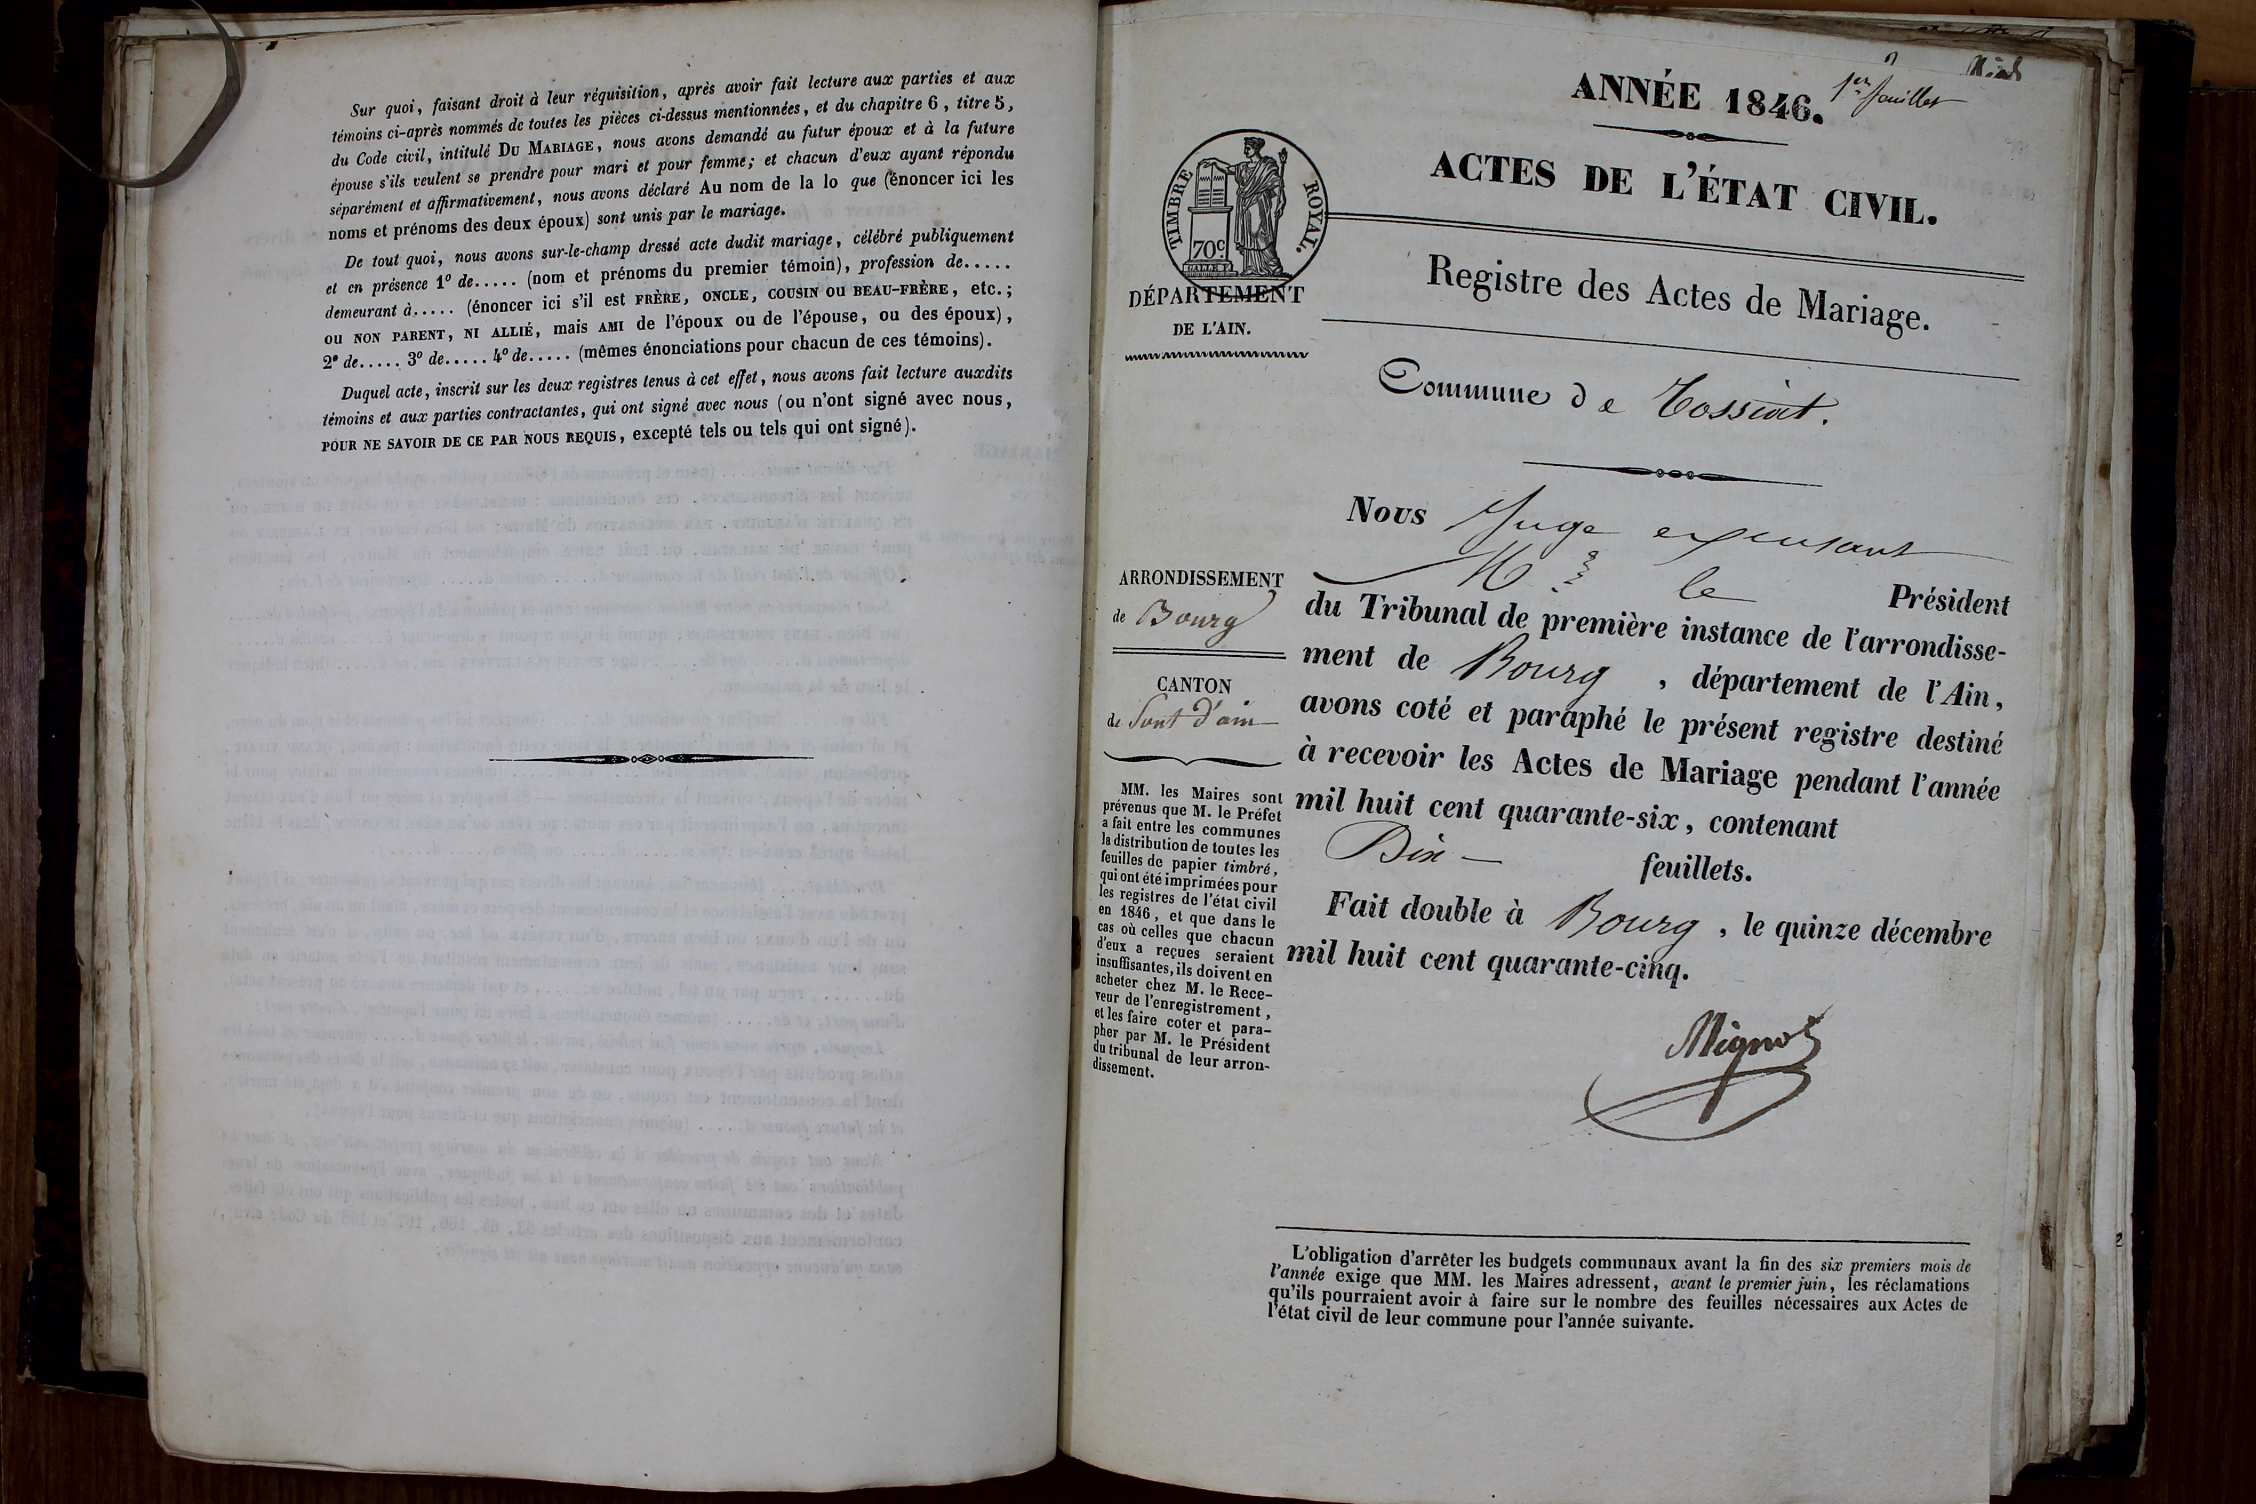 Sur quoi, faisant droit à leur réquisition, après avoir fait lecture aux parties et aux
témoins ci-après nommés de toutes les pièces ci-dessus mentionnées, et du chapitre 6, titre 5,
du Code civil, intitulé DU MARIAGE, nous avons demandé au futur époux et à la future
épouse s'ils veulent se prendre pour mari et pour femme; et chacun d'eux ayant répondu
séparément et affirmativement, nous avons déclaré Au nom de la lo que (énoncer ici les
noms et prénoms des deux époux) sont unis par le mariage.
De tout quoi, nous avons sur-le-champ dressé acte dudit mariage, célébré publiquement
et en présence 1º de..... (nom et prénoms du premier témoin), profession de.....
demeurant à..... (énoncer ici s'il est FRÈRE, ONCLE, COUSIN OU BEAU-FRÈRE, etc.;
OU NON PARENT, NI ALLIÉ, mais AMI de l'époux ou de l'épouse, ou des époux),
2º de..... 3º de..... 4º de..... (mêmes énonciations pour chacun de ces témoins).
Duquel acte, inscrit sur les deux registres tenus à cet effet, nous avons fait lecture auxdits
témoins et aux parties contractantes, qui ont signé avec nous (ou n'ont signé avec nous,
POUR NE SAVOIR DE CE PAR NOUS REQUIS, excepté tels ou tels qui ont signé).
1er feuillet
ANNÉE 1846.
ACTES DE L'ÉTAT CIVIL.
TIMBRE ROYAL.
70c
Registre des Actes de Mariage.
DÉPARTEMENT
DE L'AIN.
Commune de Tossiat.
Nous Juge
M. le Président
du Tribunal de première instance de l'arrondisse-
ment de Bourg, département de l'Ain,
avons coté et paraphé le présent registre destiné
à recevoir les Actes de Mariage pendant l'année
mil huit cent quarante-six, contenant
Dix feuillets.
Fait double à Bourg, le quinze décembre
mil huit cent quarante-cinq.
ARRONDISSEMENT
de Bourg
CANTON
de Pont d'ain
MM. les Maires sont
prévenus que M. le Préfet
a fait entre les communes
la distribution de toutes les
feuilles de papier timbré,
qui ont été imprimées pour
les registres de l'état civil
en 1846, et que dans le
cas où celles que chacun
d'eux a reçues seraient
insuffisantes, ils doivent en
acheter chez M. le Rece-
veur de l'enregistrement,
et les faire coter et para-
pher par M. le Président
du tribunal de leur arron-
dissement.
Mignot
L'obligation d'arrêter les budgets communaux avant la fin des six premiers mois de
l'année exige que MM. les Maires adressent, avant le premier juin, les réclamations
qu'ils pourraient avoir à faire sur le nombre des feuilles nécessaires aux Actes de
l'état civil de leur commune pour l'année suivante.